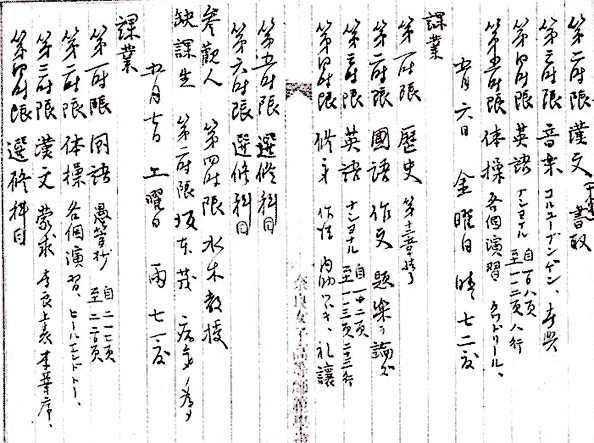 第二時限 漢文 書取
第三時限 音楽 コルユーブンゲン、
第四時限 英語 ナショナル 自一〇八頁 至一一二頁八行
第五時限 体操 各個演習 クワドリール、
五月六日 金曜日 晴 七二度
課業
第一時限 歴史 第十二章終了
第二時限 國語 作文 題 楽ヲ論ズ
第三時限 英語 ナショナル 自一一二頁 至一一三頁二十三行
第四時限 修身 作法 礼譲
第五時限 選修科目
第六時限 選修科目
参観人 第四時限 水木教授
缺課生 第二時限 坂本茂 病気ノ為メ
五月七日 土曜日 雨 七一度
課業
第一時限 国語 愚管抄 自二一七頁 至二二〇頁
第二時限 体操 各個演習、ヒールエンドトー、
第三時限 漢文 蒙求 李良上表 李華序、
第四時限 選修科目
奈良女子高等師範學校